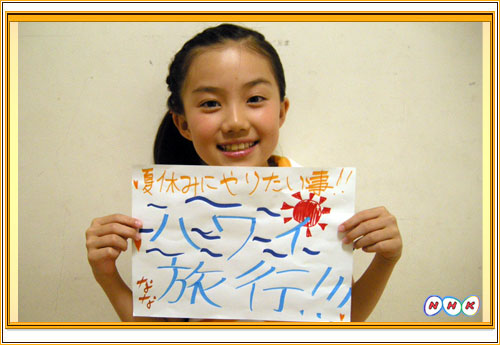 夏休みにやりたい事!!
ハワイ
旅行!!!
なな
NHK